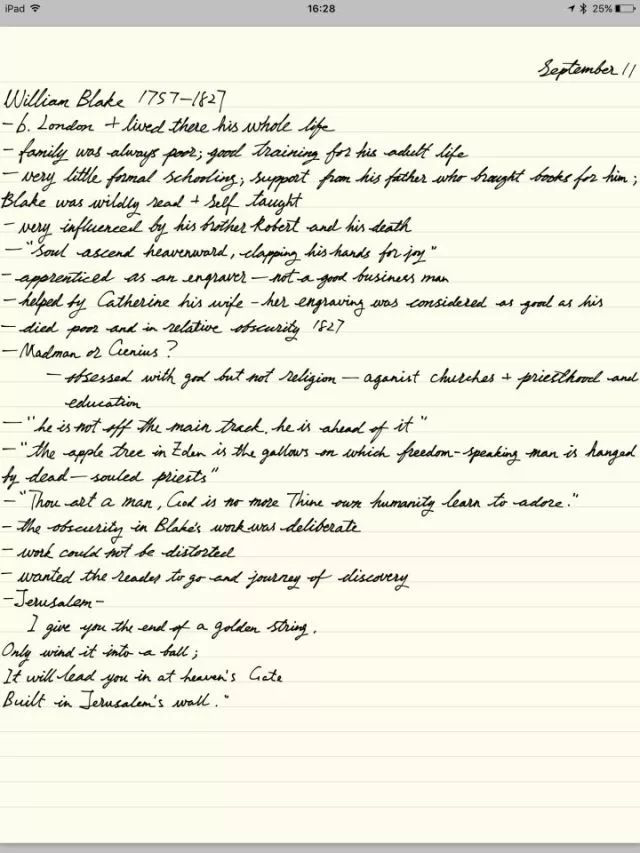 iPad 16:28 25%
September 11
William Blake 1757-1827
- b. London + lived there his whole life
- family was always poor; good training for his adult life
- very little formal schooling; support from his father who brought books for him;
Blake was wildly read + self taught
- very influenced by his brother Robert and his death
- "Soul ascend heavenward, clapping his hands for joy"
- apprenticed as an engraver - not a good business man
- helped by Catherine his wife - her engraving was considered as good as his
- died poor and in relative obscurity 1827
- Madman or Genius?
- obsessed with god but not religion - aganist churches + priesthood and
education
- "he is not off the main track. he is ahead of it"
- "the apple tree in Eden is the gallows on which freedom-speaking man is hanged
by dead-souled priests"
- "Thou art a man, God is no more Thine own humanity learn to adore."
- the obscurity in Blake's work was deliberate
- work could not be distorted
- wanted the reader to go and journey of discovery
- Jerusalem -
I give you the end of a golden string.
Only wind it into a ball;
It will lead you in at heaven's Gate
Built in Jerusalem's wall."